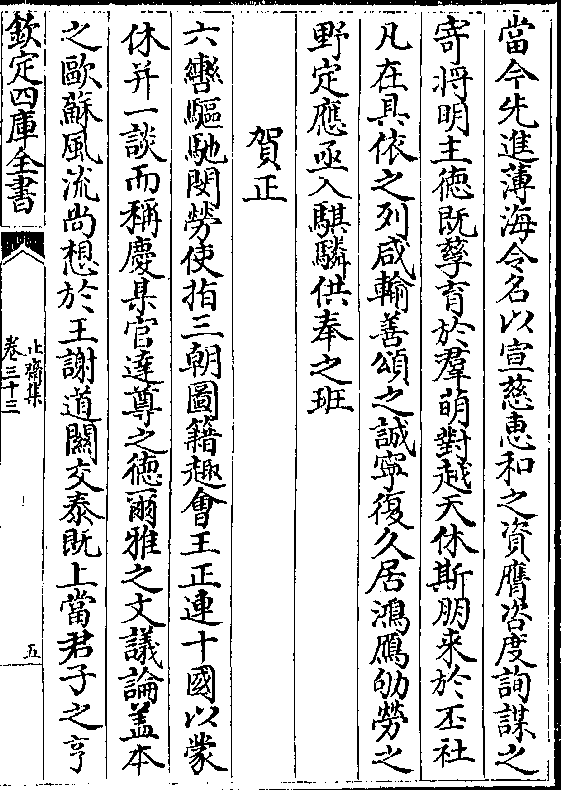 當今先進薄海令名以宣慈惠和之資膺咨度詢謀之
寄將明主徳既孳育於羣萌對越天休斯朋来於丕社
凡在具依之列咸輸善頌之誠寧復久居鴻鴈劬勞之
野定應亟入騏驎供奉之班
賀正
六轡驅馳閔勞使指三朝圖籍趣會王正連十國以蒙
休并一談而稱慶某官達尊之徳爾雅之文議論盖本
之歐蘇風流尚想於王謝道關交泰既上當君子之亨
欽定四庫全書
止齋集
卷三十三
五